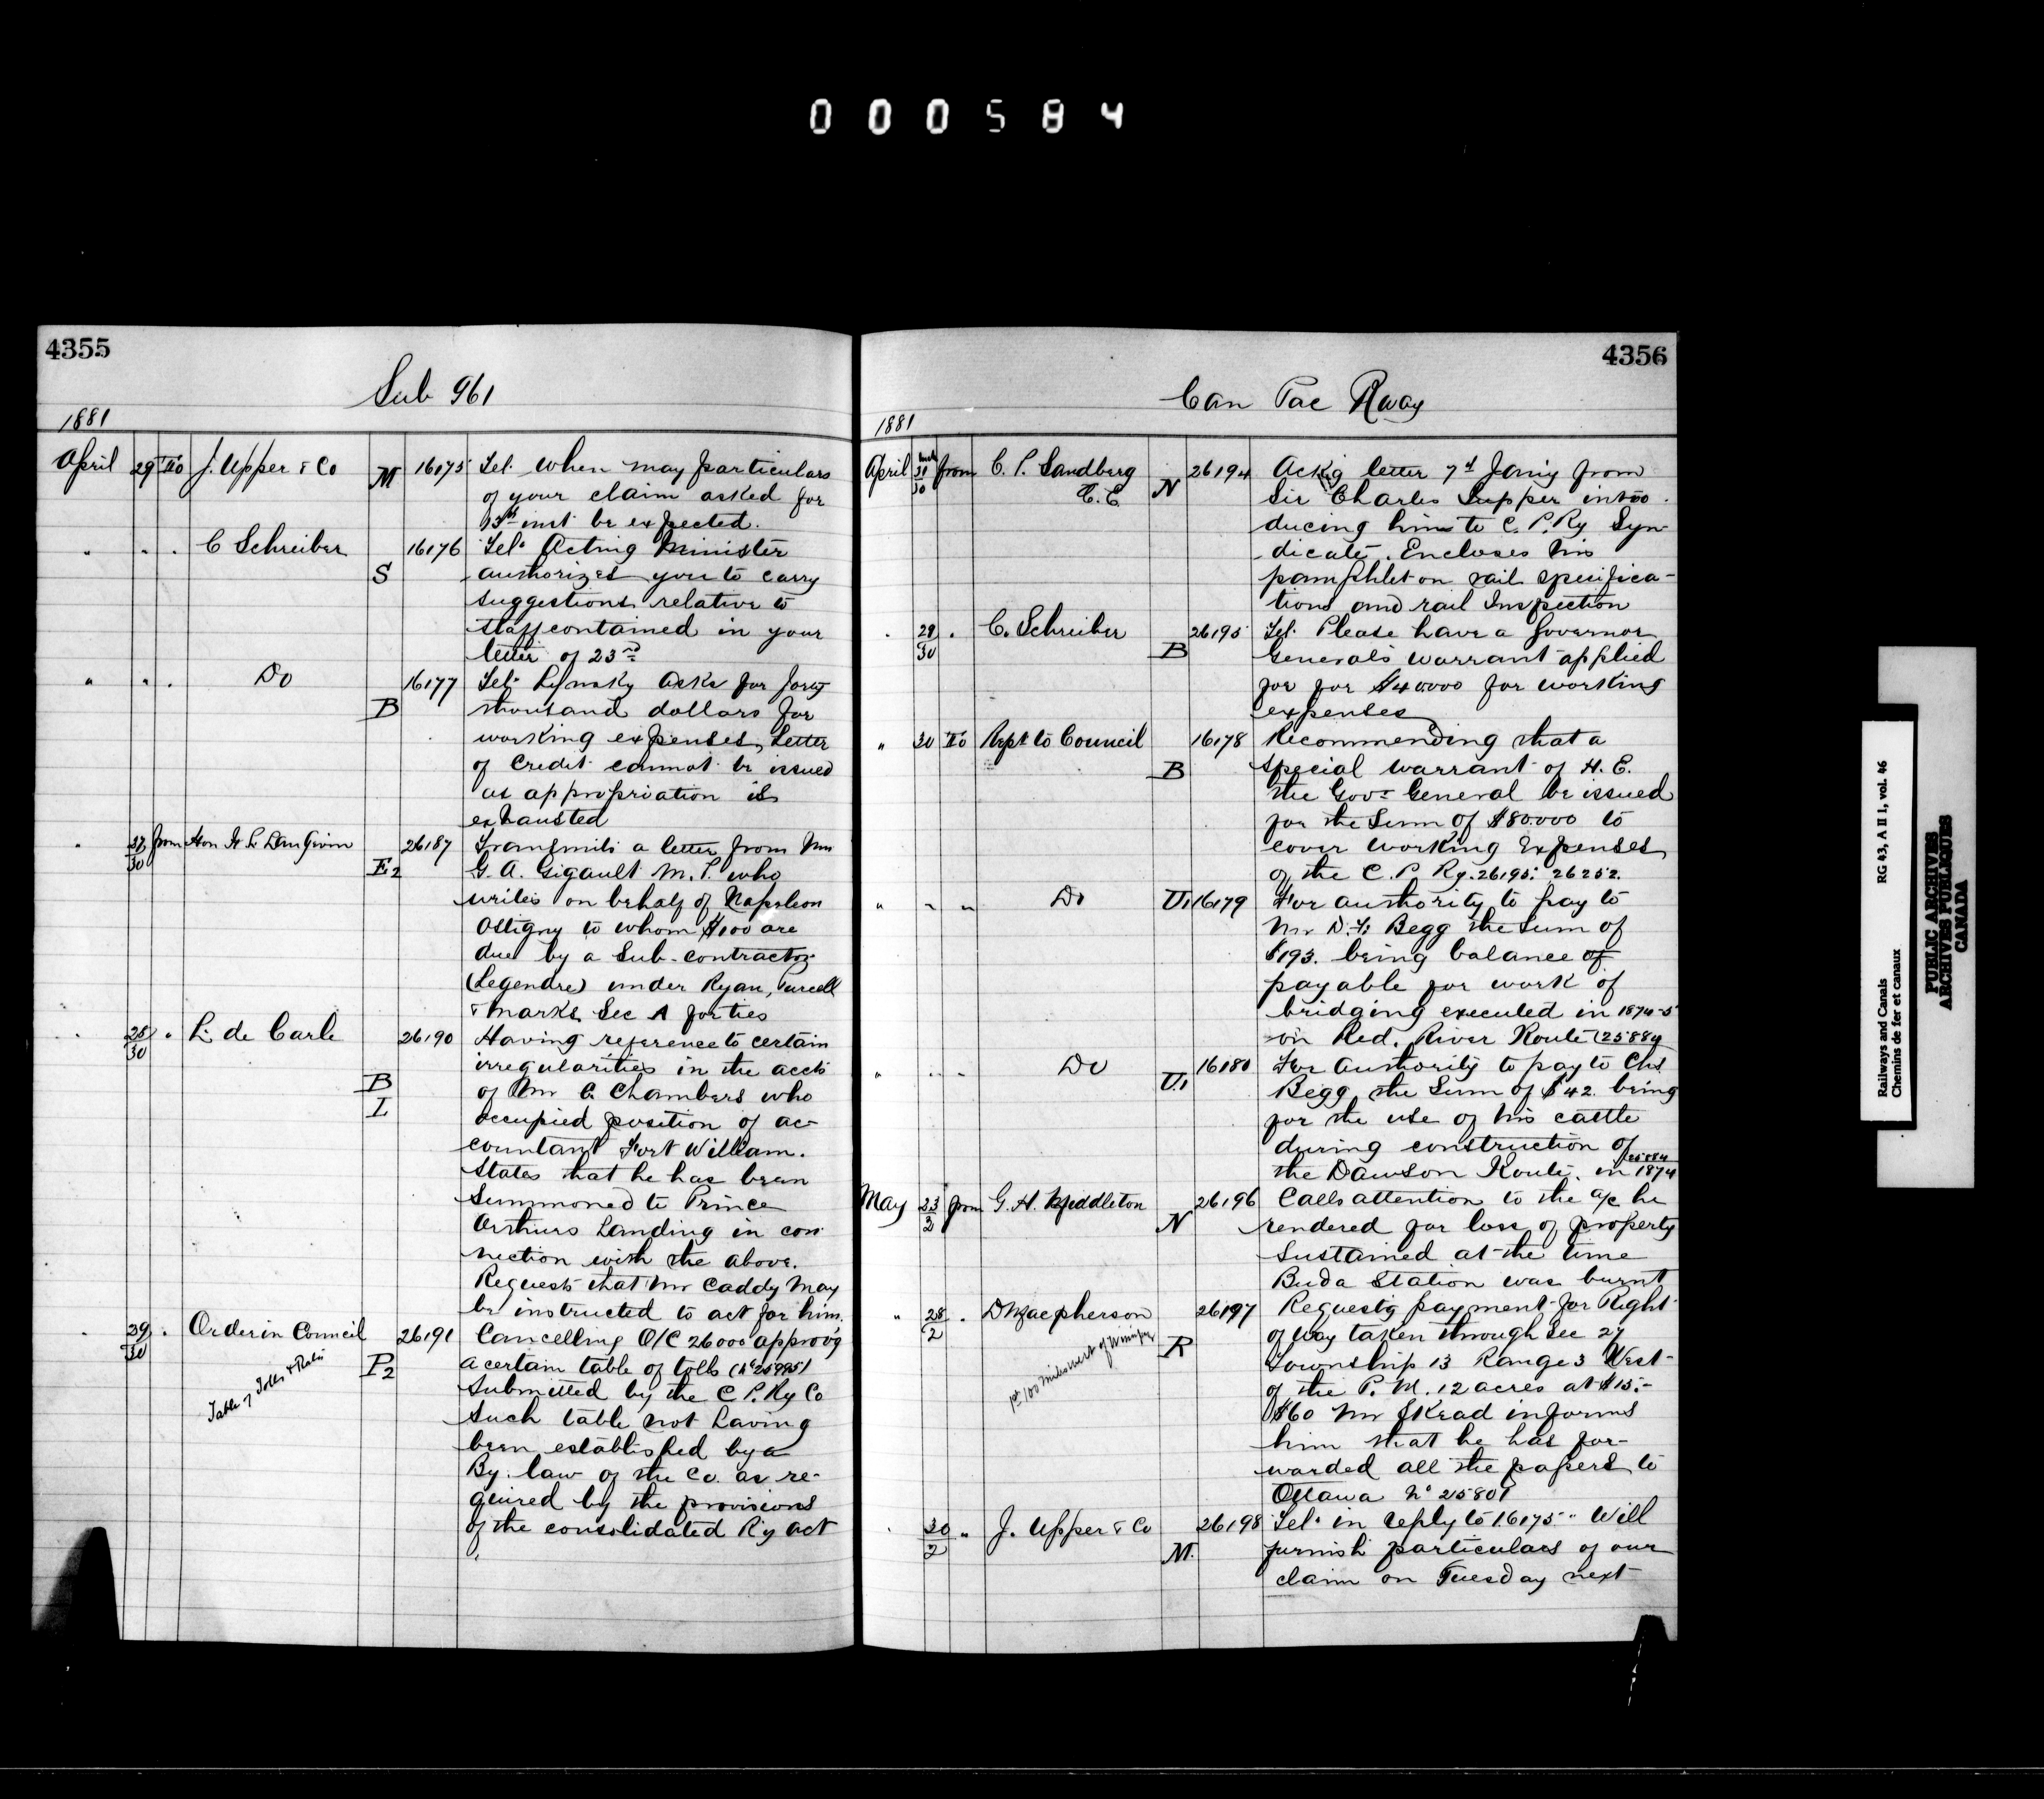 000584
4355
Sub 961
1881
April 29 To J. Upper & Co M 16175 Tel. When may particulars
of your claim asked for
13th inst be expected.
" " . C Schreiber S 16176 Tel. Acting Minister
authorizes you to carry
suggestions relative to
staff contained in your
letter of 23rd
" " . Do B 16177 Tel. Lynsky asks for forty
thousand dollars for
working expenses, Letter
of Credit cannot be issued
as appropriation is
exhausted
" 30 from Hon H. L. Langevin E2 26187 Transmits a letter from Mr
G. A. Gigault M.P. who
writes on behalf of Napoleon
Ostigny to whom $100 are
due by a Sub-contractor
(Legendre) under Ryan, Purcell
& Marks Sec A for ties
" 25/30 " L. de Carle B I 26190 Having reference to certain
irregularities in the accts
of Mr C. Chambers who
occupied position of ac-
countant Fort William.
States that he has been
Summoned to Prince
Arthurs Landing in con
nection with the above.
Requests that Mr Caddy may
be instructed to act for him.
" 29/30 . Order in Council P2 26191 Cancelling O/C 26000 approv'g
Table of Tolls & Rates
a certain table of tolls (No 25995)
Submitted by the C P. Ry Co
Such table not having
been established by a
By. law of the Co. as re-
quired by the provisions
of the consolidated Ry act
4356
Can Pac Rway
1881
April 30 from C. P. Sandberg
C.E. N 26194 Ackg letter 7th Jany from
Sir Charles Tupper intro
ducing him to C. P. Ry Syn
dicate. Encloses his
pamphlet on rail specifica-
tions and rail Inspection
. 29/30 . C. Schreiber B 26195 Tel. Please have a Governor
Generals warrant applied
for for $40000 for working
expenses
" 30 To Rept to Council B 16178 Recommending that a
special warrant of H. E.
the Govr General be issued
for the Sum of $80000 to
cover working Expenses
of the C. P Ry. 26195. 26252.
" " " Do U1 16179 For authority to pay to
Mr D. F. Begg the Sum of
$193. being balance of
payable for work of
bridging executed in 1874-5
on Red. River Route (25884
" " " Do U.1 16180 For Authority to pay to Chs
Begg the Sum of $42. being
for the use of his cattle
during construction of
25884
the Dawson Route. in 1874
May 23/2 from G. H. Middleton N 26196 Calls attention to the a/c he
rendered for loss of property
Sustained at the time
Buda Station was burnt
" 28/2 . D Macpherson R 26197 Requestg payment for Right
1st 100 miles west of Winnipeg
of Way taken through Sec 27
Township 13 Range 3 West
of the P. M. 12 acres at $15.-
$60 Mr Skead informs
him that he has for-
warded all the papers to
Ottawa No 25801
. 30/2 " J. Upper & Co M. 26198 Tel. in reply to 16175 " Will
furnish particulars of our
claim on Tuesday next
Railways and Canals RG 43, A II 1, vol. 46
Chemins de fer et canaux
PUBLIC ARCHIVES
ARCHIVES PUBLIQUES
CANADA